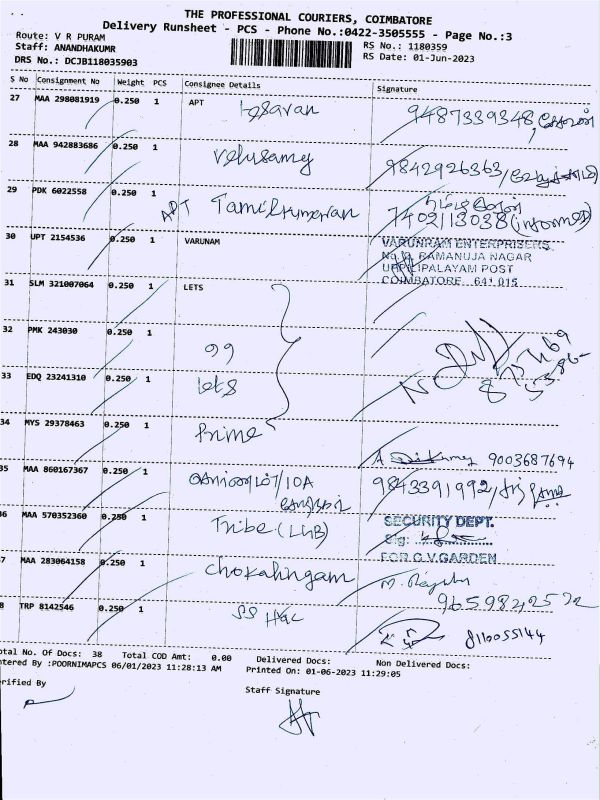 THE PROFESSIONAL COURIERS, COIMBATORE
Delivery Runsheet - PCS - Phone No.:0422-3505555 - Page No.:3
Route: V R PURAM
Staff: ANANDHAKUMR
DRS No.: DCJB118035903
RS No.: 1180359
RS Date: 01-Jun-2023
S No Consignment No Weight PCS Consignee Details Signature
27 MAA 298081919 0.250 1 APT Kesavan 9487339348,
28 MAA 942883686 0.250 1 Velusamy 9842926363/
29 PDK 6022558 0.250 1 APT Tamilkumaran 7402113038 (informed)
30 UPT 2154536 0.250 1 VARUNAM
VARUNRAM ENTERPRISERS
RAMANUJA NAGAR
UPPILIPALAYAM POST
COIMBATORE 641 015
31 SLM 321007064 0.250 1 LETS
32 PMK 243030 0.250 1 99
33 EDQ 23241310 0.250 1 lets
34 MYS 29378463 0.250 1 Prime 9003687694
35 MAA 860167367 0.250 1 /10A 9843391992/
36 MAA 570352360 0.250 1 Tribe
SECURITY DEPT.
Sig:
FOR G.V.GARDEN
37 MAA 283064158 0.250 1 Chokalingam
38 TRP 8142546 0.250 1 SS 8110055144
Total No. Of Docs: 38 Total COD Amt: 0.00 Delivered Docs: Non Delivered Docs:
Entered By :POORNIMAPCS 06/01/2023 11:28:13 AM Printed On: 01-06-2023 11:29:05
Verified By
Staff Signature